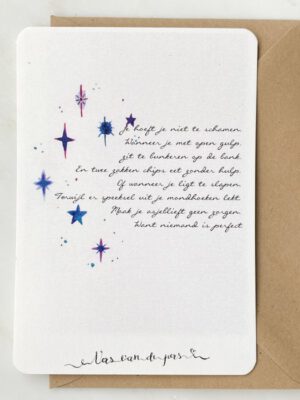 Je hoeft je niet te schamen.
Wanneer je met open gulp,
zit te bunkeren op de bank.
En twee zakken chips eet zonder hulp.
Of wanneer je ligt te slapen,
Terwijl er speeksel uit je mondhoeken lekt.
Maak je asjeblieft geen zorgen.
Want niemand is perfect
Vers van de pers